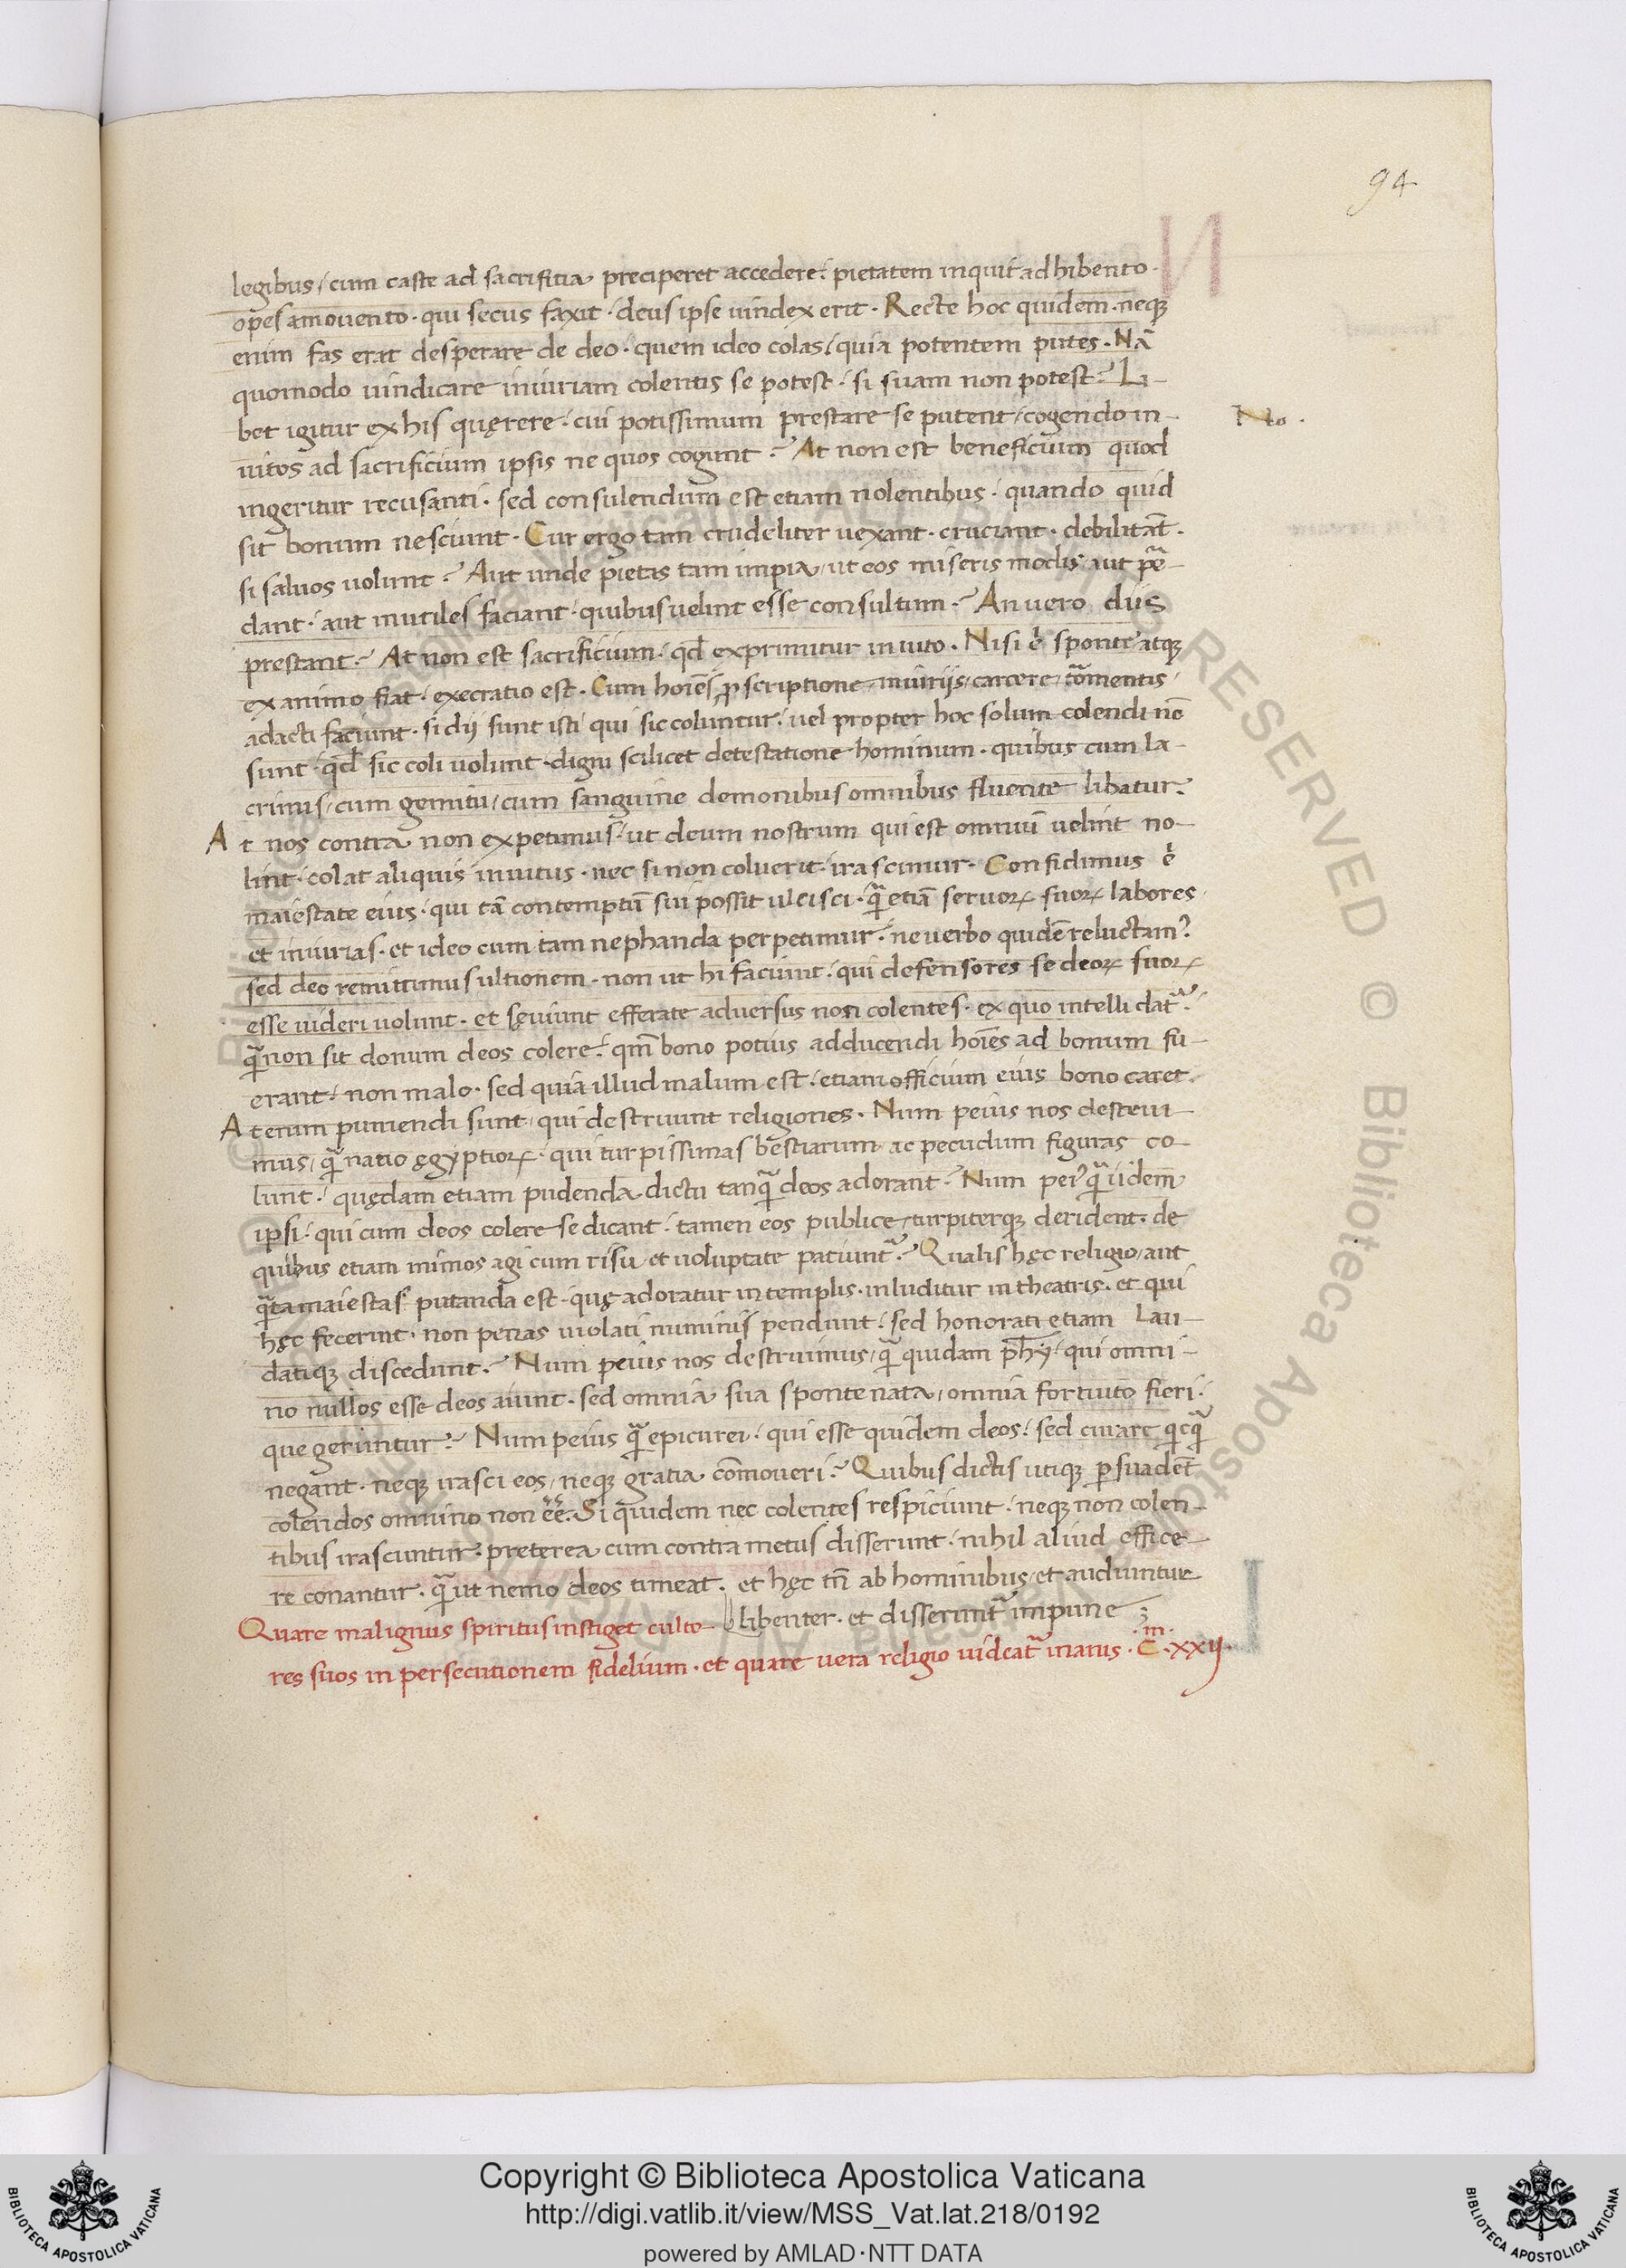 94
legibus / cum caste ad sacrifitia preciperet accedere. pietatem inquit adhibento.
opes amovento. qui secus faxit. deus ipse vindex erit. Recte hoc quidem. neqꝫ
enim fas erat desperare de deo. quem ideo colas / quia potentem putes. Nā
quomodo vindicare iniuriam colentis se potest. si suam non potest? Li-
bet igitur ex his quęrere. cui potissimum prestare se putent / cogendo in-
vitos ad sacrificium ipsis ne quos cogunt? At non est beneficium quod
No.
ingeritur recusanti. sed consulendum est etiam nolentibus. quando quid
sit bonum nesciunt. Cur ergo tam crudeliter vexant. cruciant. debilitāt.
si salvos volunt? Aut unde pietas tam impia / ut eos miseris modis aut ꝑ-
dant. aut inutiles faciant. quibus velint esse consultum? An vero diis
prestant? At non est sacrificium. qd̄ exprimitur invito. Nisi .n. sponte atqꝫ
ex animo fiat. execratio est. Cum hoīes ꝓscriptione / iniuriis / carcere / tormentis /
adacti faciunt. si dij sunt isti qui sic coluntur. vel propter hoc solum colendi nō
sunt. qd̄ sic coli volunt. digni scilicet detestatione hominum. quibus cum la-
crimis / cum gemitu / cum sanguine demonibus omnibus fluente libatur.
At nos contra non expetimus. ut deum nostrum qui est omniū velint no-
lint. colat aliquis invitus. nec si non coluerit. irascimur. Confidimus .n.
maiestate eius. qui tā contemptū sui possit ulcisci. quā etiā servoꝝ suoꝝ labores
et iniurias. et ideo cum tam nephanda perpetimur. ne verbo quidē reluctamur.
sed deo remittimus ultionem. non ut hi faciunt. qui defensores se deoꝝ suoꝝ
esse videri volunt. et sęviunt efferate adversus non colentes. ex quo intelli datur.
quā non sit donum deos colere. qm̄ bono potius adducendi hoīes ad bonum fu-
erant. non malo. sed quia illud malum est. etiam officium eius bono caret.
At enim puniendi sunt / qui destruunt religiones. Num peius nos destrui-
mus / quā natio ęgyptioꝝ. qui turpissimas bestiarum ac pecudum figuras co-
lunt. quędam etiam pudenda dictu tanquā deos adorant? Num peius quā iidem
ipsi. qui cum deos colere se dicant. tamen eos publice / turpiterqꝫ derident. de
quibus etiam mimos agi cum risu et voluptate patiuntur? Qualis hęc religio / aut
quāta maiestas putanda est. quę adoratur in templis. inluditur in theatris. et qui
hęc fecerint. non penas violati numinis pendunt. sed honorati etiam lau-
datiqꝫ discedunt? Num peius nos destruimus / quā quidam phȳ. qui omni-
no nullos esse deos aiunt. sed omnia sua sponte nata / omnia fortuito fieri.
que geruntur? Num peius quā epicurei. qui esse quidem deos. sed curare quicquā
negant. neqꝫ irasci eos / neqꝫ gratia cōmoveri? Quibus dictis utiqꝫ ꝑsuadēt
colendos omnino non eē. Si quidem nec colentes respiciunt. neqꝫ non colen-
tibus irascuntur. preterea cum contra metus disserunt. nihil aliud effice-
re conantur. quā ut nemo deos timeat. et hęc tn̄ ab hominibus / et audiuntur
libenter. et disseruntur impune
Quare malignus spiritus instiget culto-
res suos in persecutionem fidelium. et quare vera religio videatur inanis. C.m xxij.
Copyright © Biblioteca Apostolica Vaticana
http://digi.vatlib.it/view/MSS_Vat.lat.218/0192
powered by AMLAD·NTT DATA
BIBLIOTECA APOSTOLICA VATICANA
BIBLIOTECA APOSTOLICA VATICANA